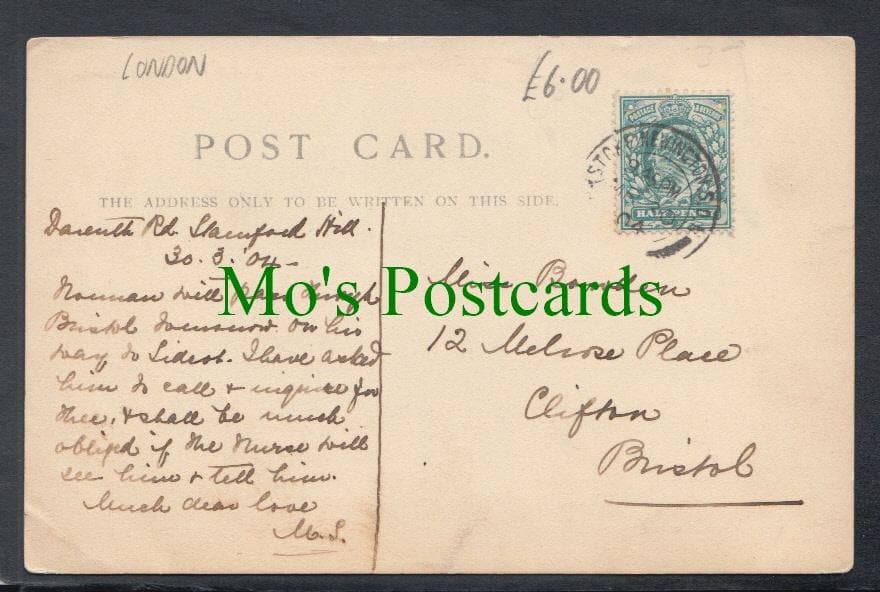 LONDON
£6.00
POST CARD.
THE ADDRESS ONLY TO BE WRITTEN ON THIS SIDE.
POSTAGE & REVENUE
HALF PENNY
STOKE NEWINGTON
04
Darenth Rd. Stamford Hill.
30.3.'04
Norman will pass through
Bristol tomorrow on his
way to Sidcot. I have asked
him to call & inquire for
thee, & shall be much
obliged if the nurse will
see him & tell him.
Much dear love
M.S.
Miss
12 Melrose Place
Clifton
Bristol
Mo's Postcards